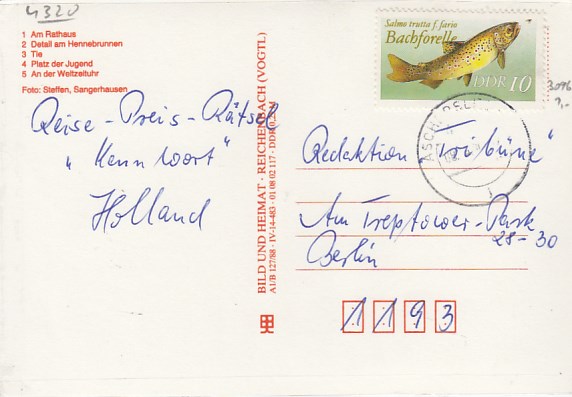 4320
1 Am Rathaus
2 Detail am Hennebrunnen
3 Tie
4 Platz der Jugend
5 An der Weltzeituhr
Foto: Steffen, Sangerhausen
Reise-Preis-Rätsel
"Kennwort"
Holland
BILD UND HEIMAT · REICHENBACH (VOGTL)
A1/B 127/88 · IV-14-483 · 01 08 02 117 · DDR
Salmo trutta f. fario
Bachforelle
DDR 10
3096
Redaktion "Tribüne"
Am Treptower-Park
28-30
Berlin
1193